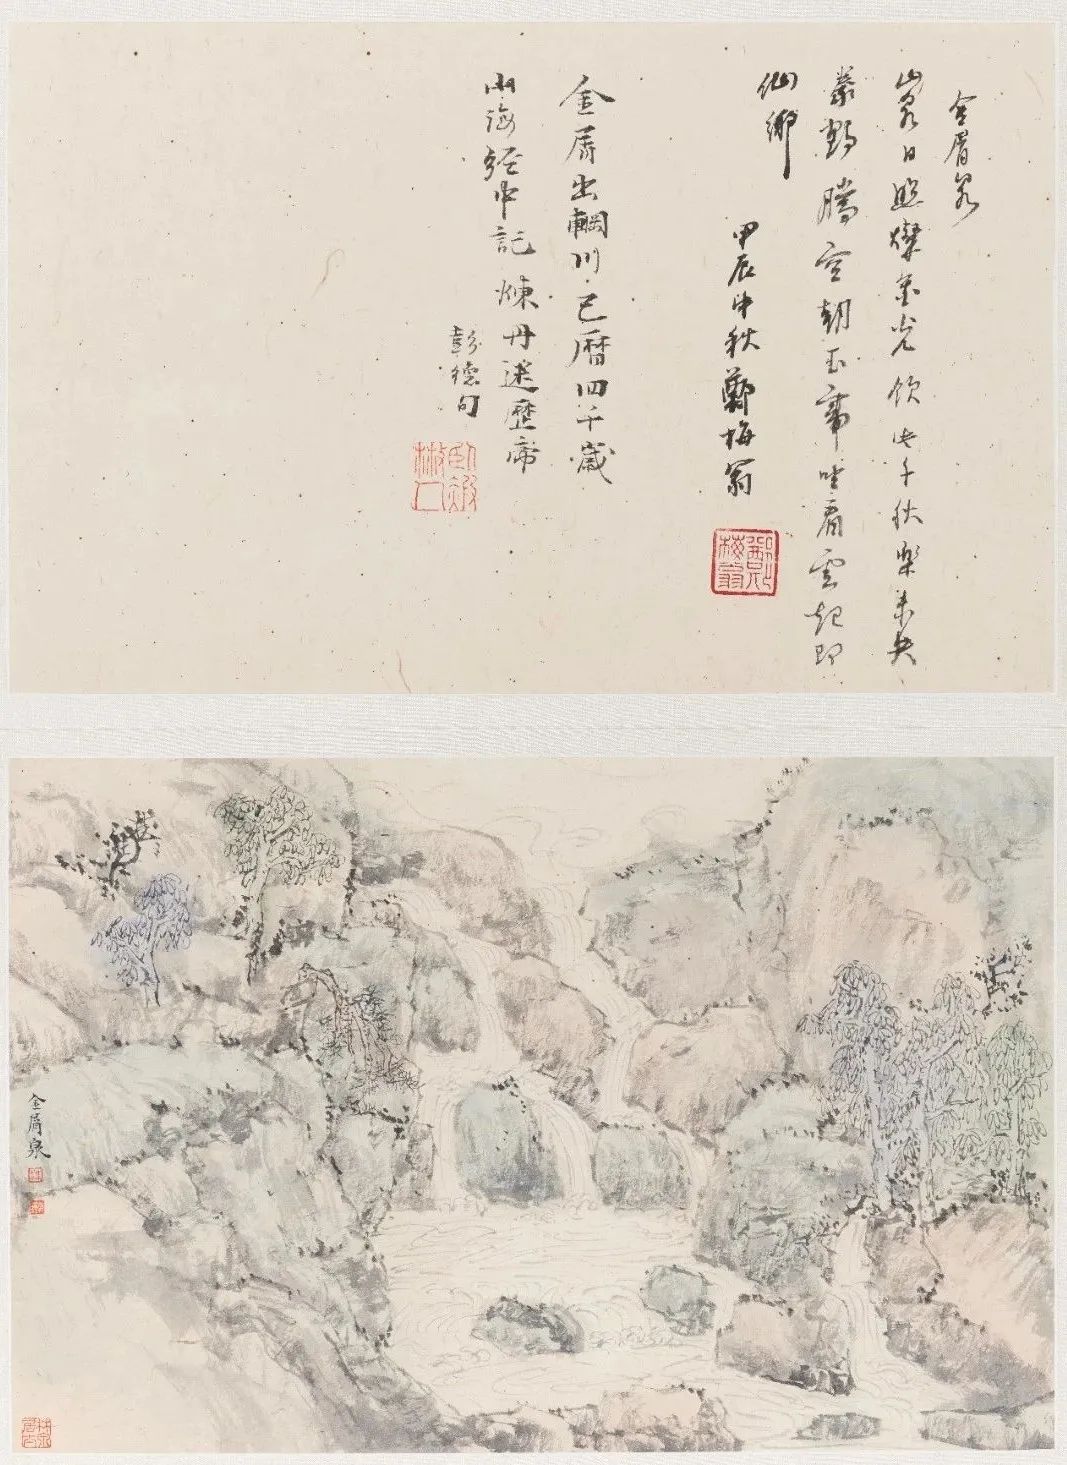 金屑泉
山泉日照燦金光飲此千秋樂未央
鸞鶴騰空朝玉帝坐看雲起即
仙鄉
甲辰中秋鄭梅翁
鄭梅翁
金屑出輞川已曆四千歲
山海經中記煉丹迷歷帝
彭德句
金屑泉